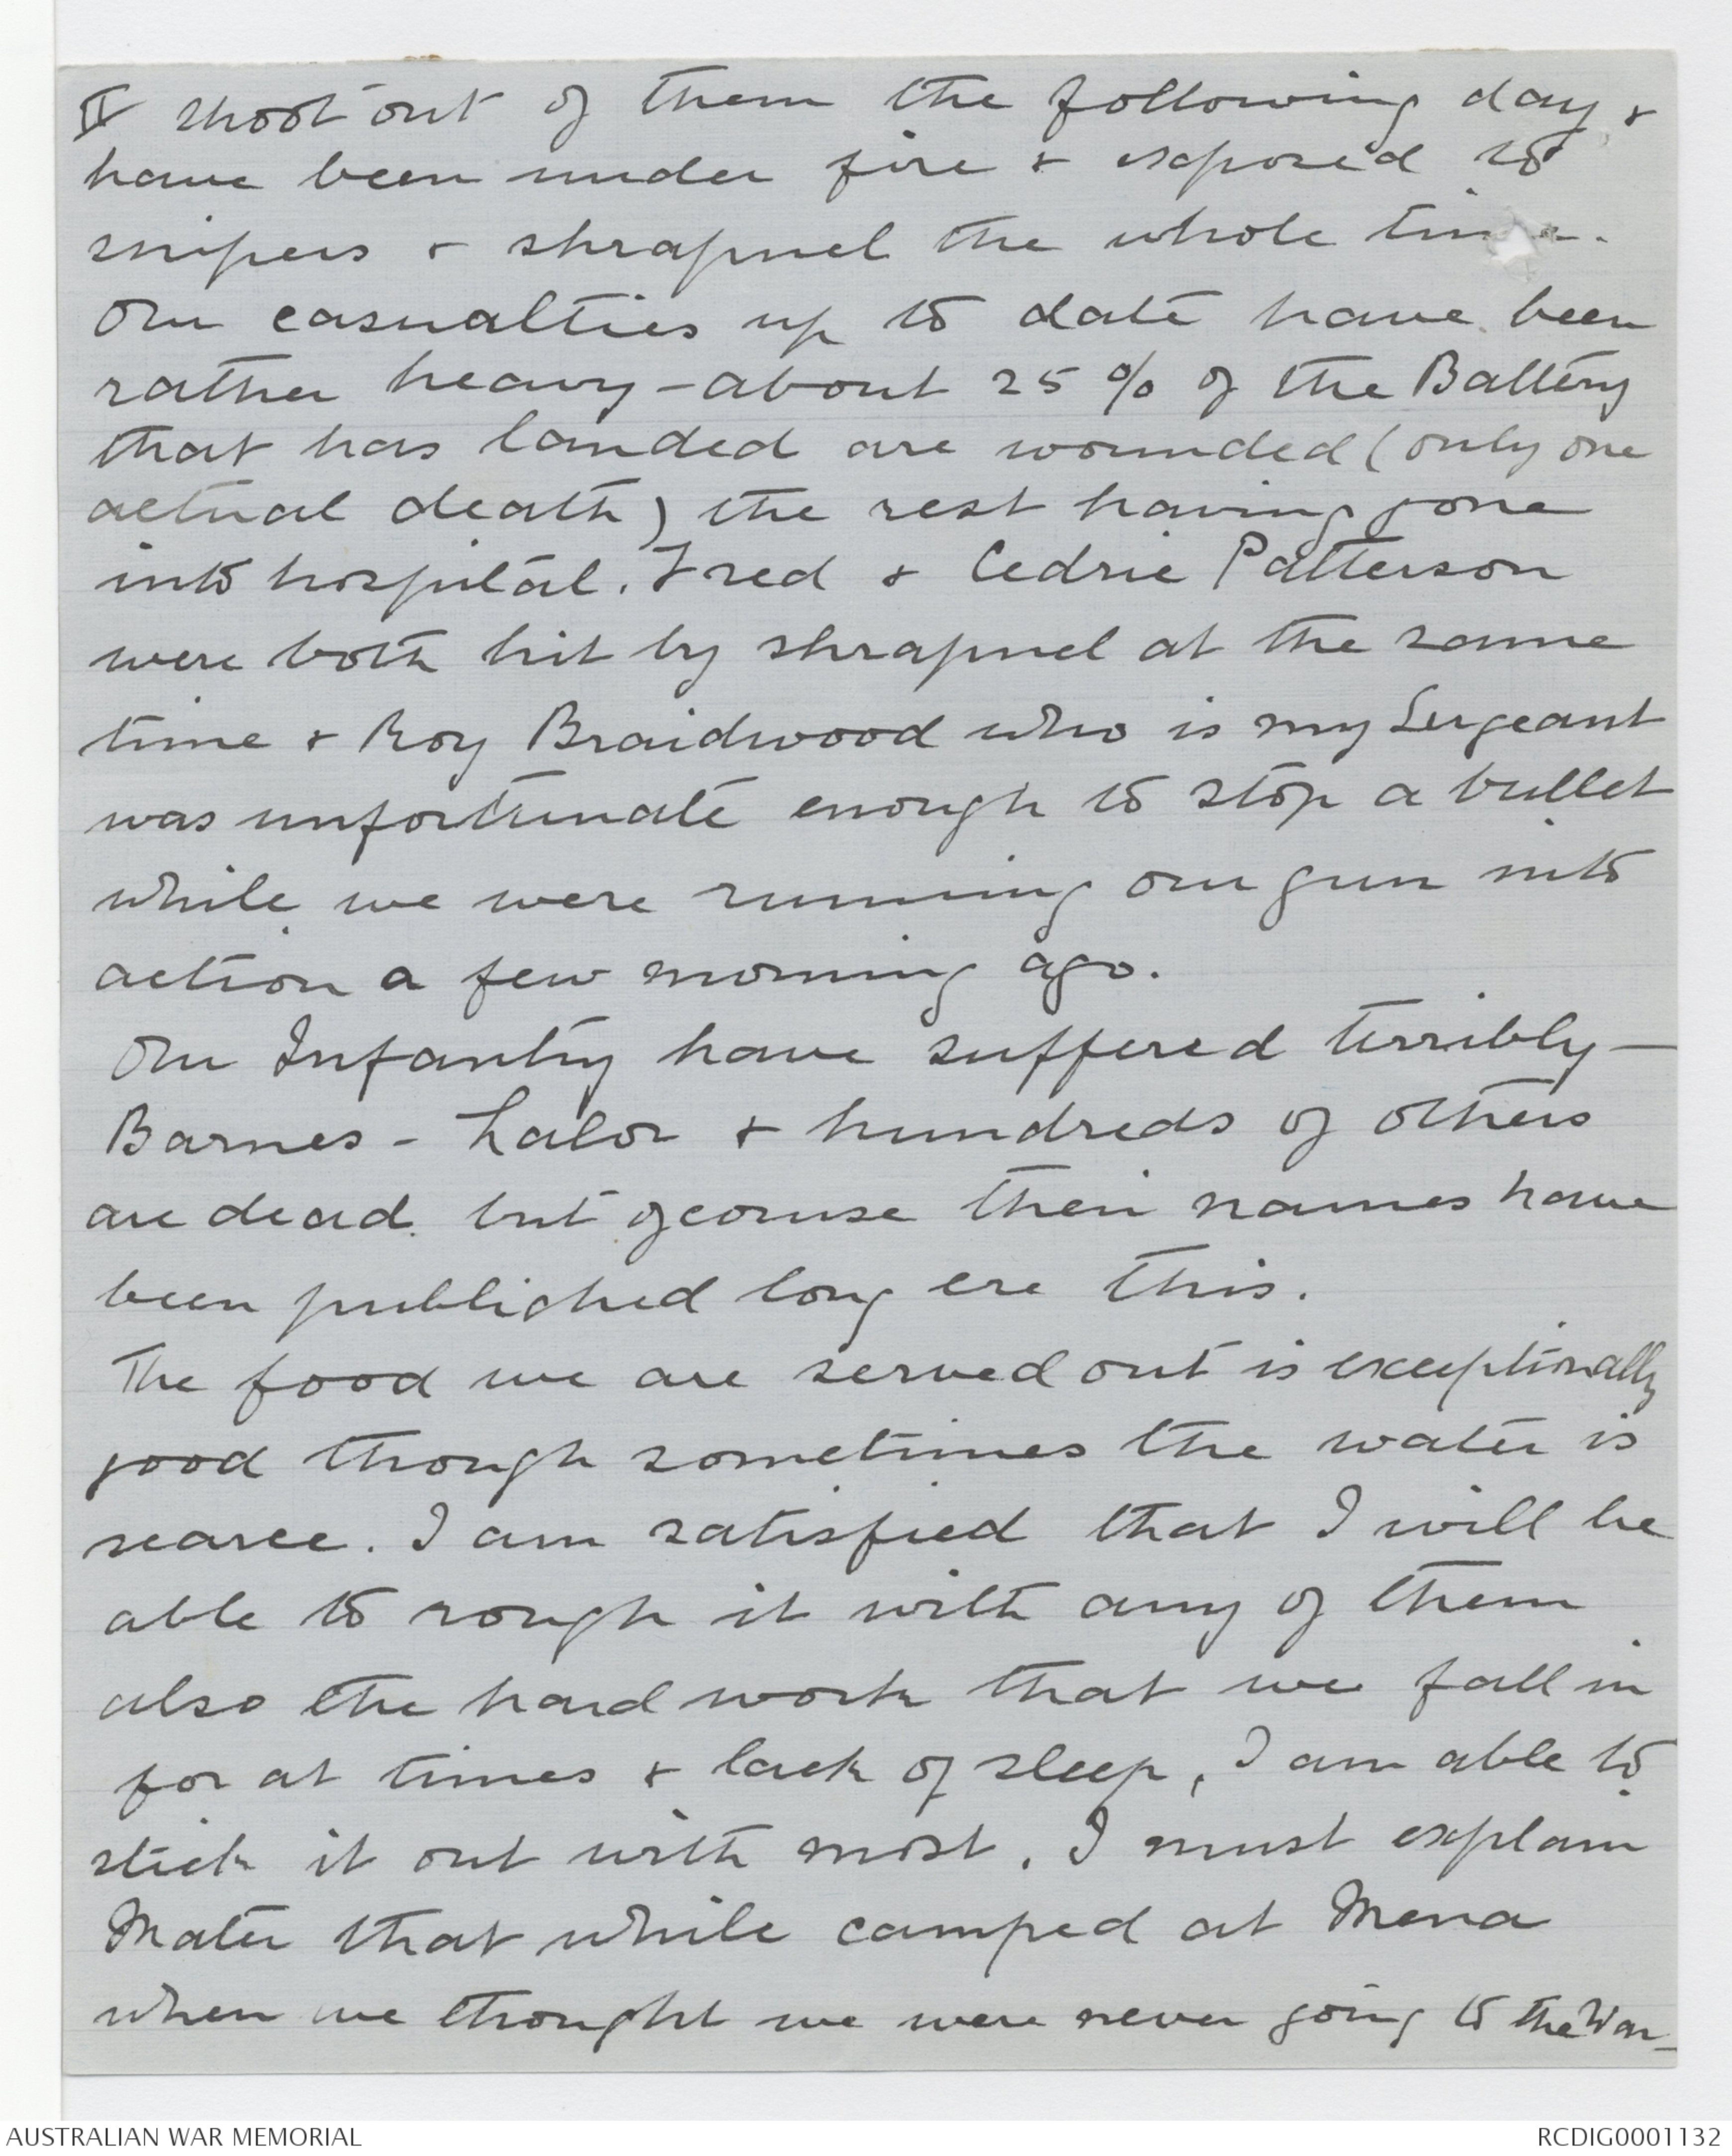 IV shoot out of them the following day &
have been under fire & exposed to
snipers & shrapnel the whole time.
Our casualties up to date have been
rather heavy - about 25% of the Battery
that has landed are wounded (only one
actual death) the rest having gone
into hospital. Fred & Cedric Patterson
were both hit by shrapnel at the same
time & Roy Braidwood who is my Sergeant
was unfortunate enough to stop a bullet
while we were running our gun into
action a few morning ago.
Our Infantry have suffered terribly -
Barnes - Lalor & hundreds of others
are dead. but ofcourse their names have
been published long ere this.
The food we are served out is exceptionally
good though sometimes the water is
scarce. I am satisfied that I will be
able to rough it with any of them
also the hard work that we fall in
for at times & lack of sleep, I am able to
stick it out with most. I must explain
Mater that while camped at Mena
when we thought we were never going to the War -
AUSTRALIAN WAR MEMORIAL
RCDIG0001132